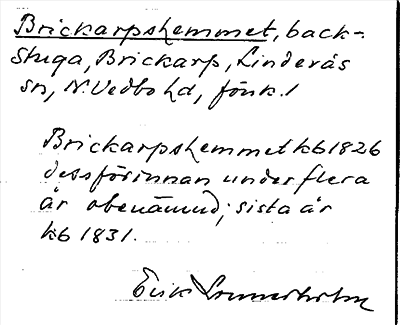 Brickarpshemmet, back-
stuga, Brickarp, Linderås
sn, N. Vedbo hd, Jönk. l
Brickarpshemmet kb 1826
dessförinnan under flera
år obenämnd; sista år
kb 1831.
Erik